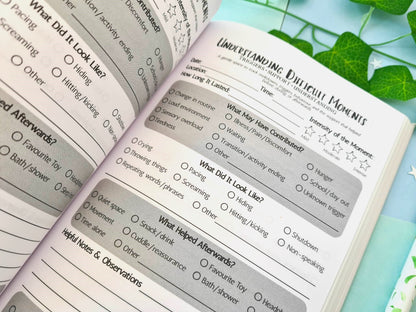 What May Have Contributed?
Transition/activity ending
Other
What Did It Look Like?
Pacing
Hiding
Screaming
Hitting/kicking
Other
What Helped Afterwards?
Favourite Toy
Bath/shower
Other
UNDERSTANDING DIFFICULT MOMENTS
TRIGGERS • SUPPORT • UNDERSTANDING
Date:
Location:
Time:
How Long It Lasted:
Intensity of the Moment:
What May Have Contributed?
Change in routine
Illness/Pain/Discomfort
Hunger
Loud environment
Waiting
School/day out
Sensory overload
Transition/activity ending
Unknown trigger
Tiredness
Other
What Did It Look Like?
Crying
Pacing
Hiding
Shutdown
Throwing things
Screaming
Hitting/kicking
Non-speaking
Repeating words/phrases
Other
What Helped Afterwards?
Quiet space
Snack/drink
Favourite Toy
Movement
Cuddle/reassurance
Bath/shower
Time alone
Other
Helpful Notes & Observations